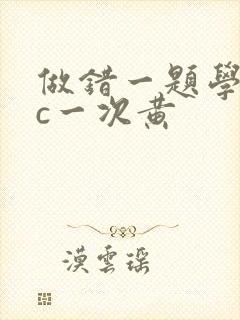 做錯一題學
c一次黄
漠雲瑶